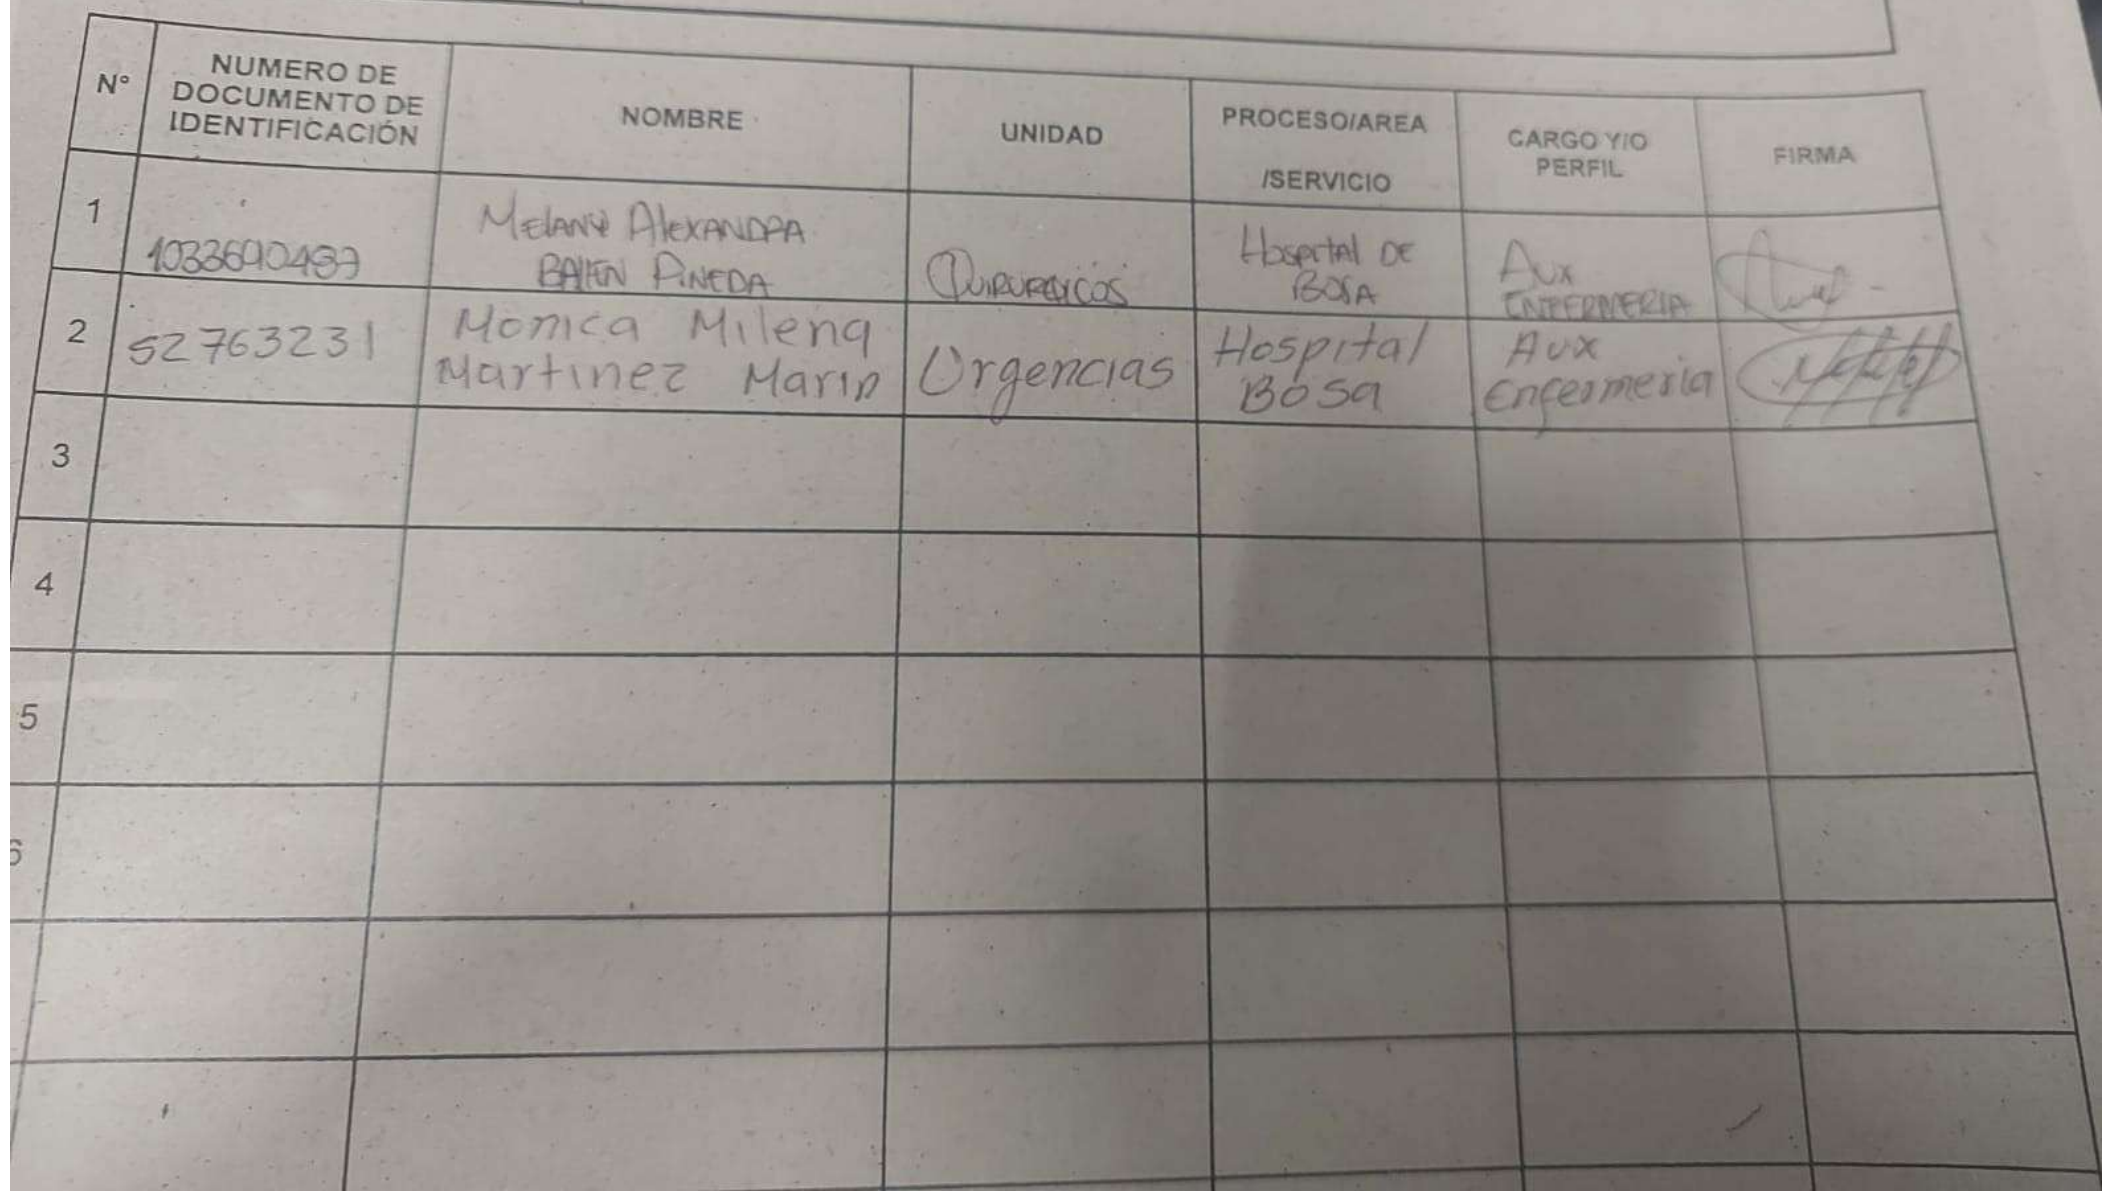 N° NUMERO DE DOCUMENTO DE IDENTIFICACIÓN NOMBRE UNIDAD PROCESO/AREA /SERVICIO CARGO Y/O PERFIL FIRMA
1 MELANY ALEXANDRA PINEDA QUIRURGICOS Hospital DE BOSA AUX ENFERMERIA
2 52763231 Monica Milena Martinez Marin Urgencias Hospital Bosa AUX Enfermeria
3
4
5
6